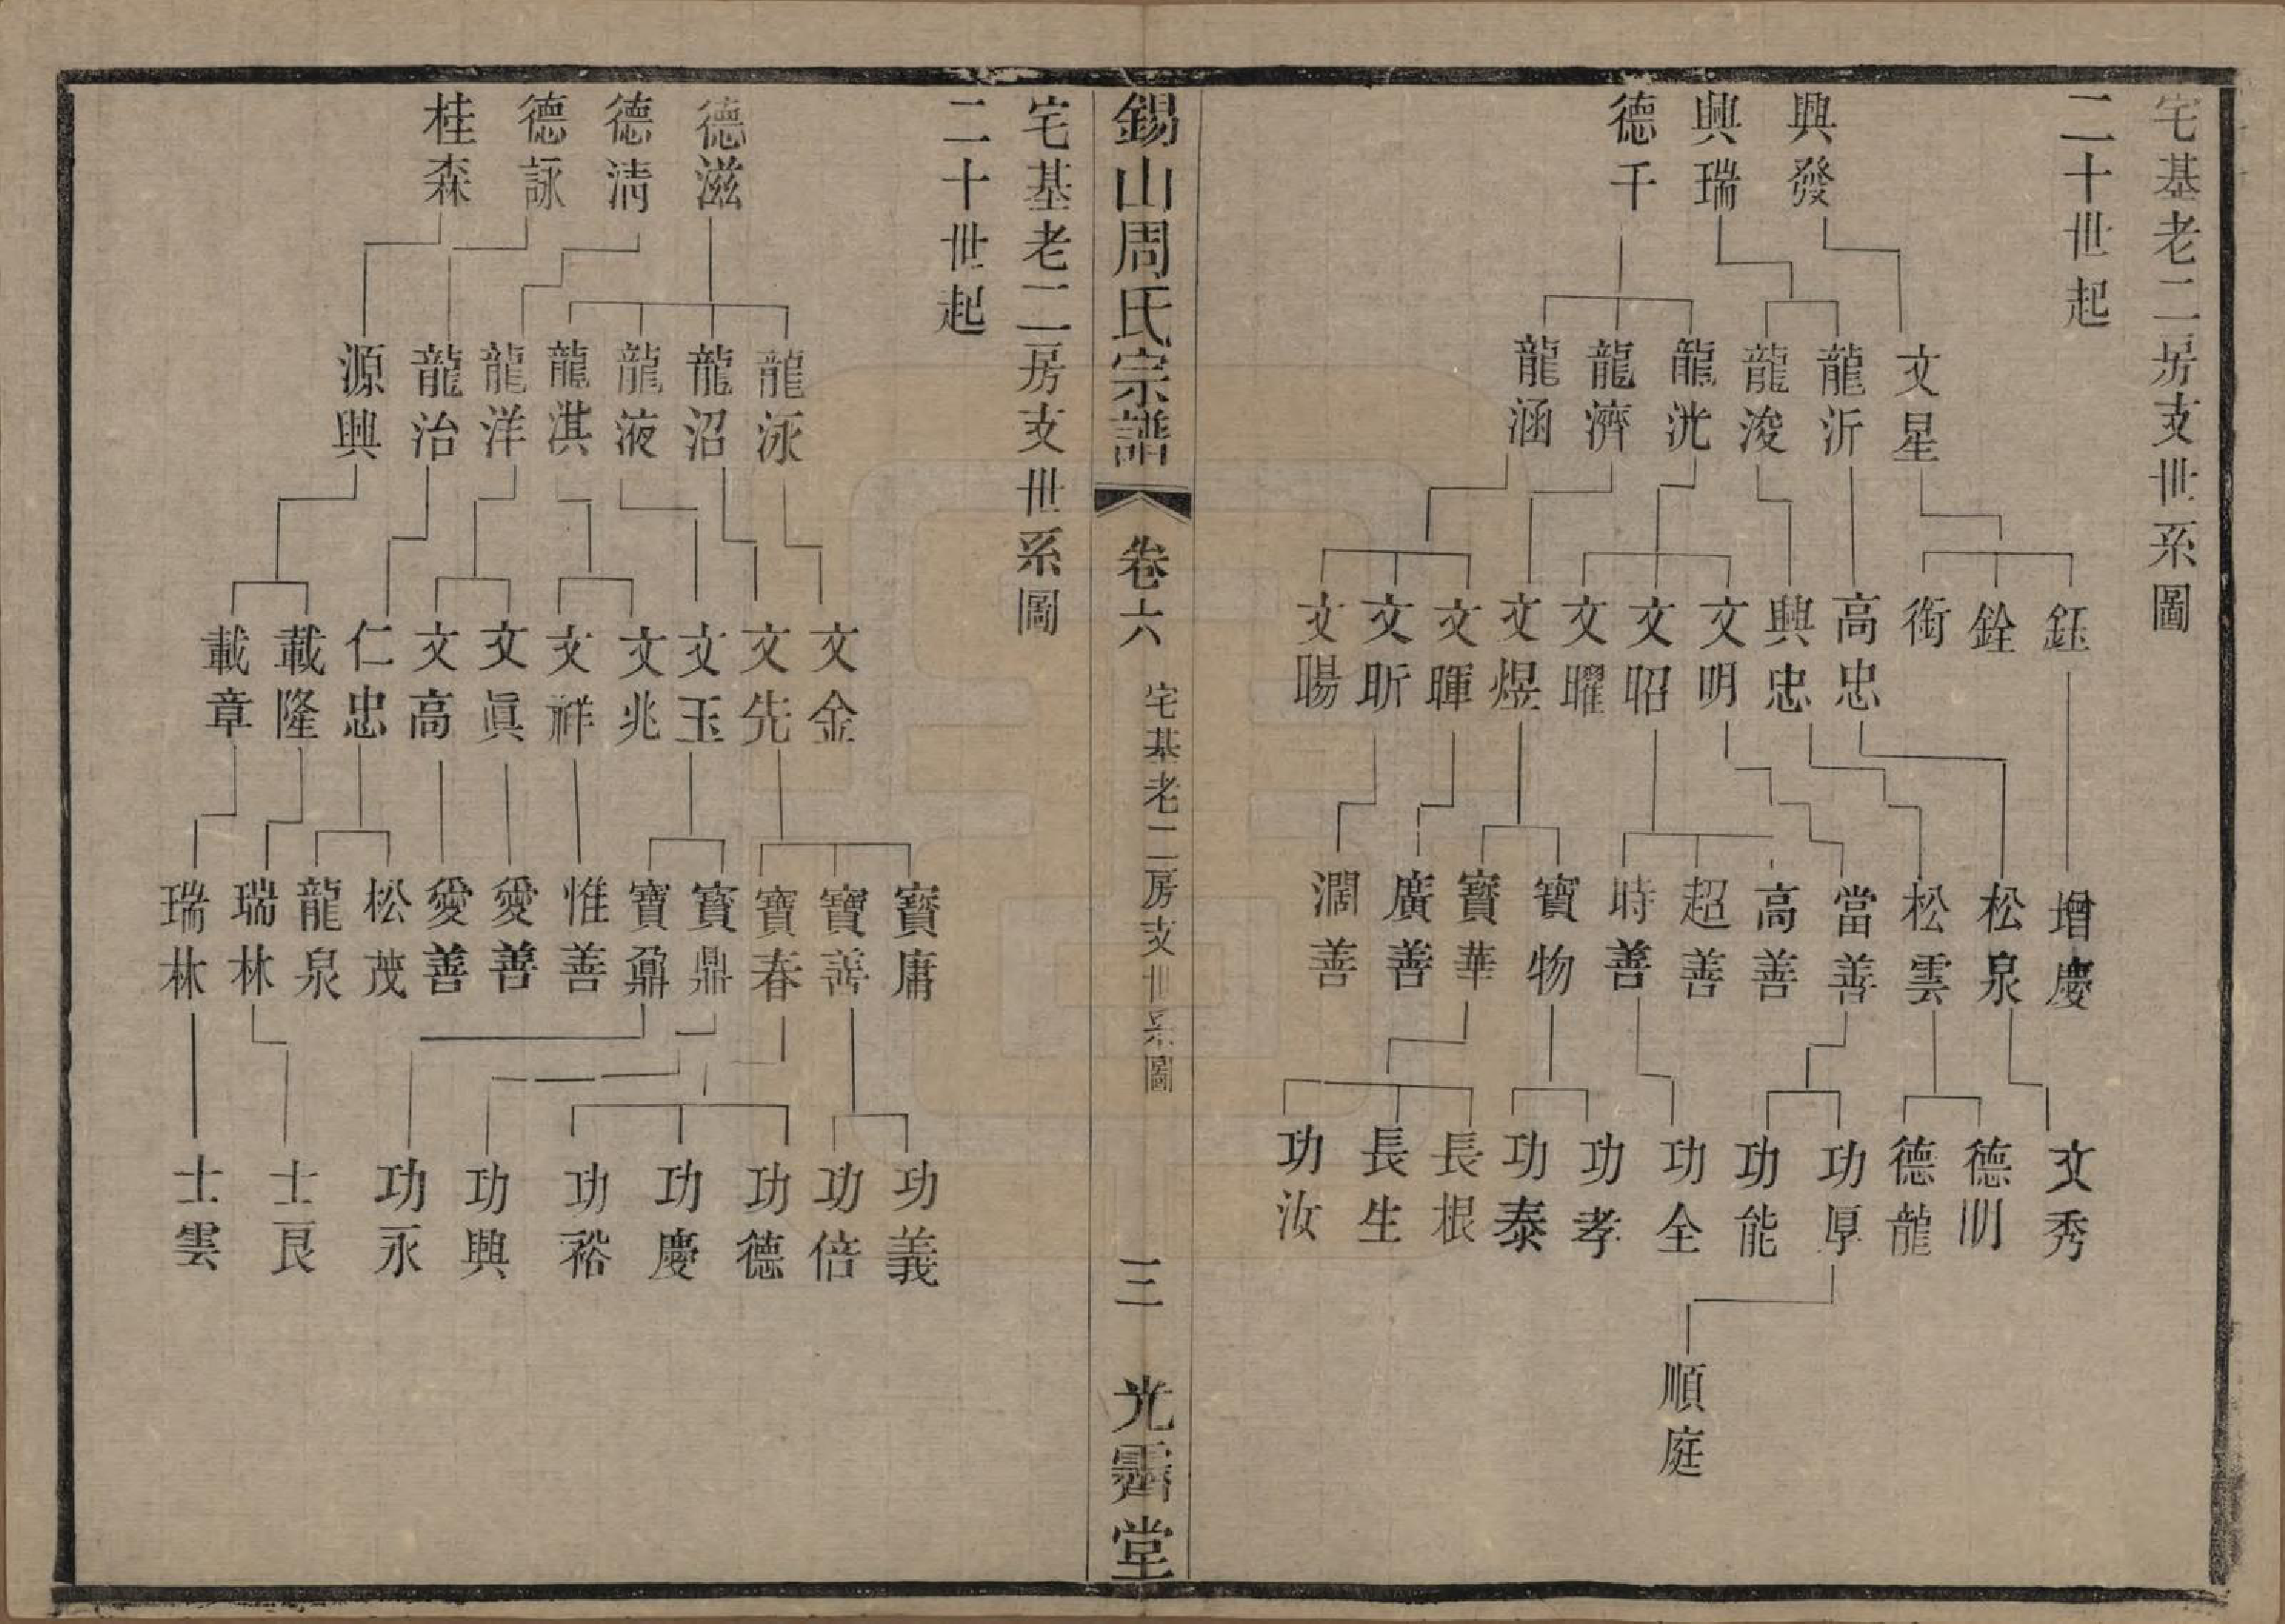 宅基老二房支世系圖
二十世起
興發
興瑞
德千
文星
龍沂
龍浚
龍洸
龍濟
龍涵
鈺
銓
銜
高忠
興忠
文明
文昭
文曜
文煜
文暉
文昕
文暘
增慶
松泉
松雲
當善
高善
超善
時善
寶物
寶華
廣善
濶善
文秀
德明
德龍
功厚
功能
功全
功孝
功泰
長根
長生
功汝
順庭
錫山周氏宗譜
卷六
宅基老二房支世系圖
三
光霽堂
宅基老二房支世系圖
二十世起
德滋
德清
德詠
桂森
龍泳
龍沼
龍液
龍淇
龍洋
龍治
源興
文金
文先
文玉
文兆
文祥
文眞
文高
仁忠
載隆
載章
寶庸
寶善
寶春
寶鼎
寶鼐
惟善
愛善
愛善
松茂
龍泉
瑞林
瑞林
功義
功倍
功德
功慶
功裕
功興
功永
士良
士雲